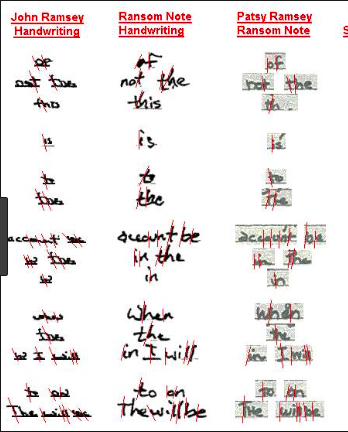 John Ramsey Ransom Note Patsy Ramsey
Handwriting Handwriting Ransom Note S
of of of
not the not the not the
this this th
is is is
to to to
the the the
account be account be
in the in the in the
in in in
when When when
the the the
in I will in I will in I will
to on to on to on
The will be The will be The will be